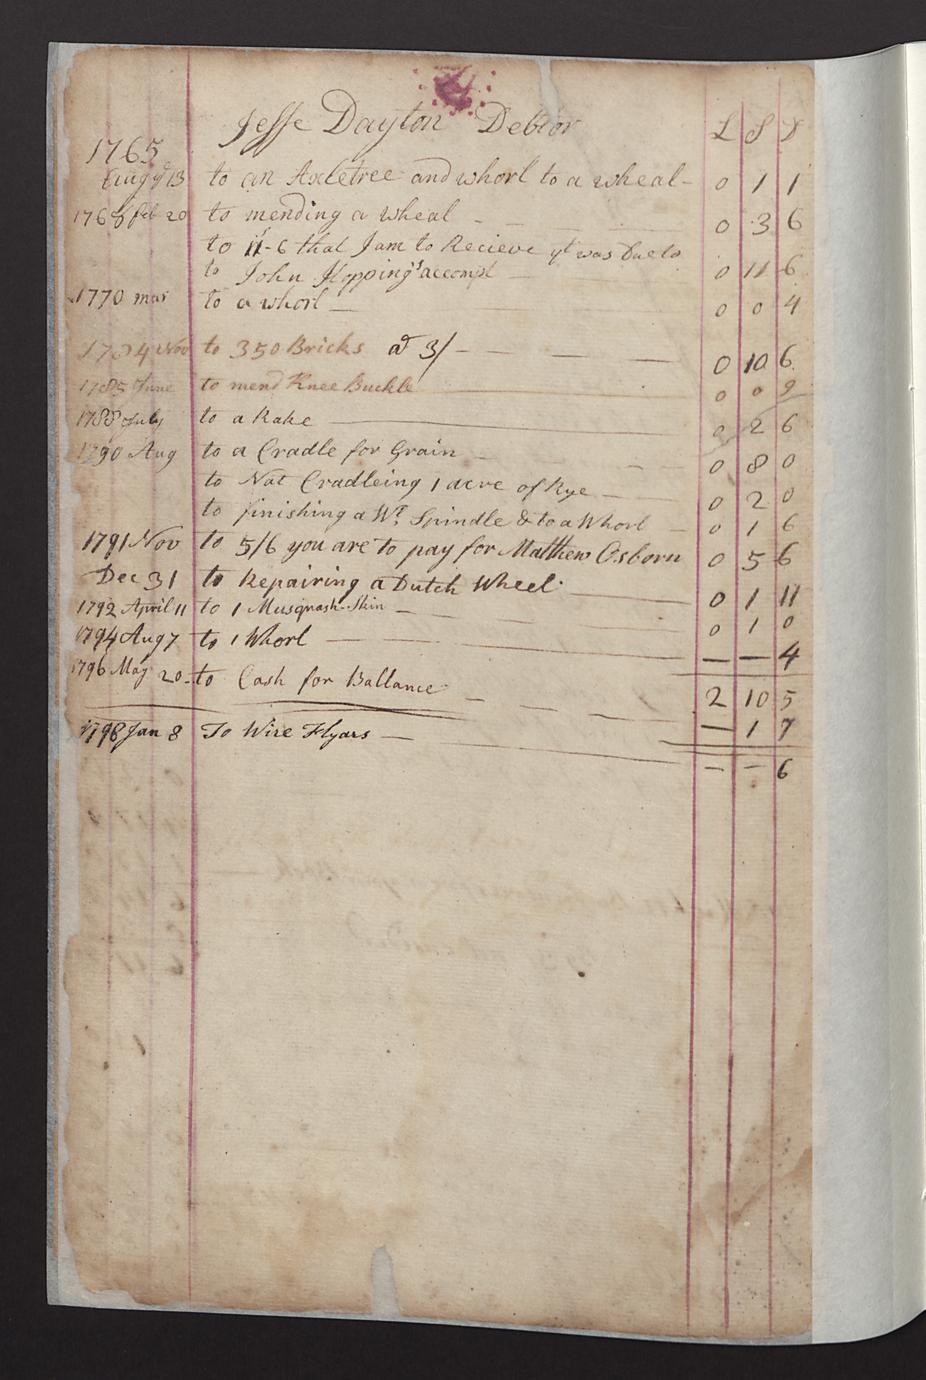 Jesse Dayton Debtor L S D
1765
Augyᵉ 13 to an Axletree and whorl to a wheal - 0 1 1
1768 feb 20 to mending a wheal - 0 3 6
to 11-6 that I am to Recieve yᵗ was Due to
to John Hopping's accompt 0 11 6
1770 mar to a whorl - 0 0 4
1784 Nov to 350 Bricks at 3/ - 0 10 6
1785 June to mend Knee Buckle 0 0 9
1788 July to a Rake 0 2 6
1790 Aug to a Cradle for Grain - 0 8 0
to Nat Cradleing 1 acre of Rye - 0 2 0
to finishing a Wᵗ Spindle & to a Whorl - 0 1 6
1791 Nov to 5/6 you are to pay for Matthew Osborn 0 5 6
Dec 31 to Repairing a Dutch Wheel - 0 1 11
1792 April 11 to 1 Musquash-Skin - 0 1 0
1794 Aug 7 to 1 Whorl - — — 4
1796 May 20 - to Cash for Ballance - 2 10 5
— 1 7
1798 Jan 8 To Wire Flyars - — — 6